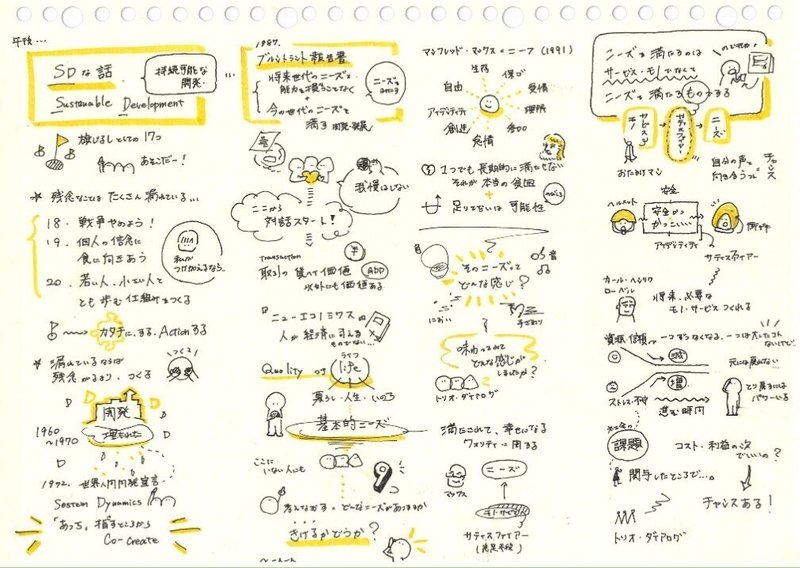 午後...
SDな話
持続可能な
開発.
Sustainable Development
旗じるしとしての17つ
あそこだー!
* 残念なことは たくさん漏れている...
18. 戦争やめよう!
19. 個人の信念に
食に向きあう
20. 若い人、小さい人と
とも歩む仕組みをつくる
私が
つけかえるなら、
カタチに、する、Actionする
* 漏れているなら
残念がるより、つくる
つくる!
開発
1960
~1970
埋もれた
1972. 世界人間開発宣言
System Dynamics
「あっち」指すところから
Co-create
1987.
ブルントラント報告書
将来世代のニーズを
能力を損うことなく
+
今の世代のニーズを
満す 開発・発展
ニーズは
我慢はしない
ここから
対話スタート!
Transaction
取引の 全て価値
以外にも価値ある
ADD
『ニューエコノミクス』
人が経済に
ものでない...
Quality of life
ライフ
暮らし・人生・いのち
基本的ニーズ
ここに
いない人にも
考えなおす。どんなニーズがあったか
きけるかどうか?
マンフレッド・マックス=ニーフ (1991)
生存
保ゴ
自由
愛情
アイデンティティ
理解
創造
参加
1つでも長期的に満たせない
それが本当の貧困
+
足りてないは 可能性
そのニーズって
どんな感じ?
音
におい
手ざわり
味わってみて
どんな感じが
しましたか?
トリオ・ダイアログ
満たされて、幸せになる
クオリティに関する
マックス
ニーズ
モノ・サービス
サティスファイアー
(充足手段)
ニーズを満たすのは
サービス・モノでなくて
ニーズを満たすものをする
モノ
サービス
サティスファイアー
ニーズ
おたすけマン
自分の声と
向き合うって
チャンス
ヘルメット
安全
安全かつ
かっこいい
アイデンティティ
サティスファイアー
カール・ヘンリク
ローベル
将来、必要な
モノ・サービス つくれる
資源、信頼
減
元には戻れない
増
ストレス・不和
進む時間
とり戻すには
パワーいる
課題
コスト・利益の次
でいいの?
関与したところで...
チャンスある!
トリオ・ダイアログ